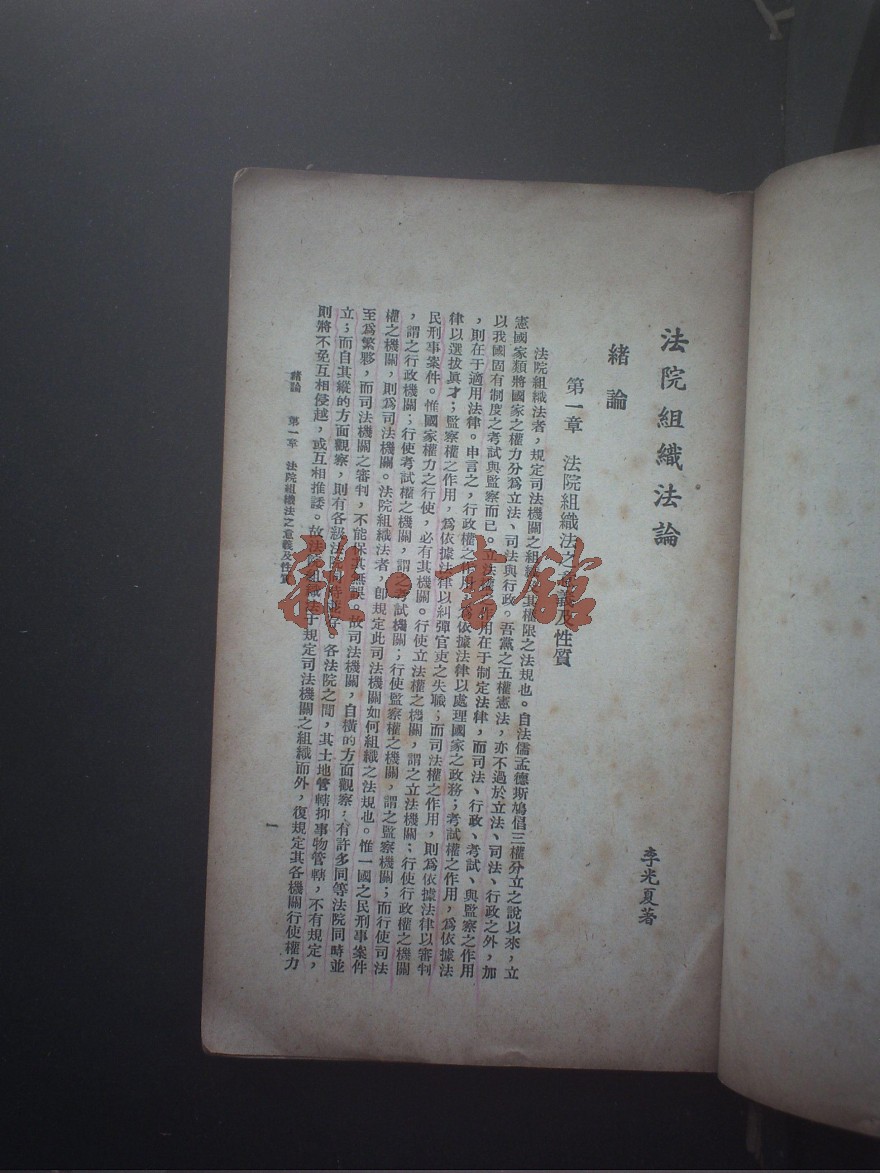 法院組織法論
李光夏著
緒論
第一章　法院組織法之意義及性質
法院組織法者，規定司法機關之組織及其權限之法規也。自法儒孟德斯鳩倡三權分立之說以來，立
憲國家類將國家之權力分爲立法、司法與行政。吾黨之五權憲法，亦不過於立法、司法、行政之外，加
以我國固有制度之考試與監察而已。立法權之作用在于制定法律，而司法、行政、考試、與監察之作用
，則在于適用法律。申言之，行政權之作用，爲依據法律以處理國家之政務；考試權之作用，爲依據法
律以選拔眞才；監察權之作用，爲依據法律以糾彈官吏之失職；而司法權之作用，則爲依據法律以審判
民刑事案件。惟國家權力之行使，必有其機關。行使立法權之機關，謂之立法機關；行使行政權之機關
，謂之行政機關；行使考試權之機關，謂之考試機關；行使監察權之機關，謂之監察機關；而行使司法
權之機關，則爲司法機關。法院組織法者，卽規定此司法機關如何組織之法規也。惟一國之民刑事案件
至爲繁夥，而司法機關之審判，不能保其無誤。故司法機關，自橫的方面觀察，有許多同等法院同時並
立；而自其縱的方面觀察，則有各級法院同時並存。各法院之間，其土地管轄抑事物管轄，不有規定，
則將不免互相侵越，或互相推諉。故法院組織法于規定司法機關之組織而外，復規定其各機關行使權力
緒論　第一章　法院組織法之意義及性質
一
雜·書館